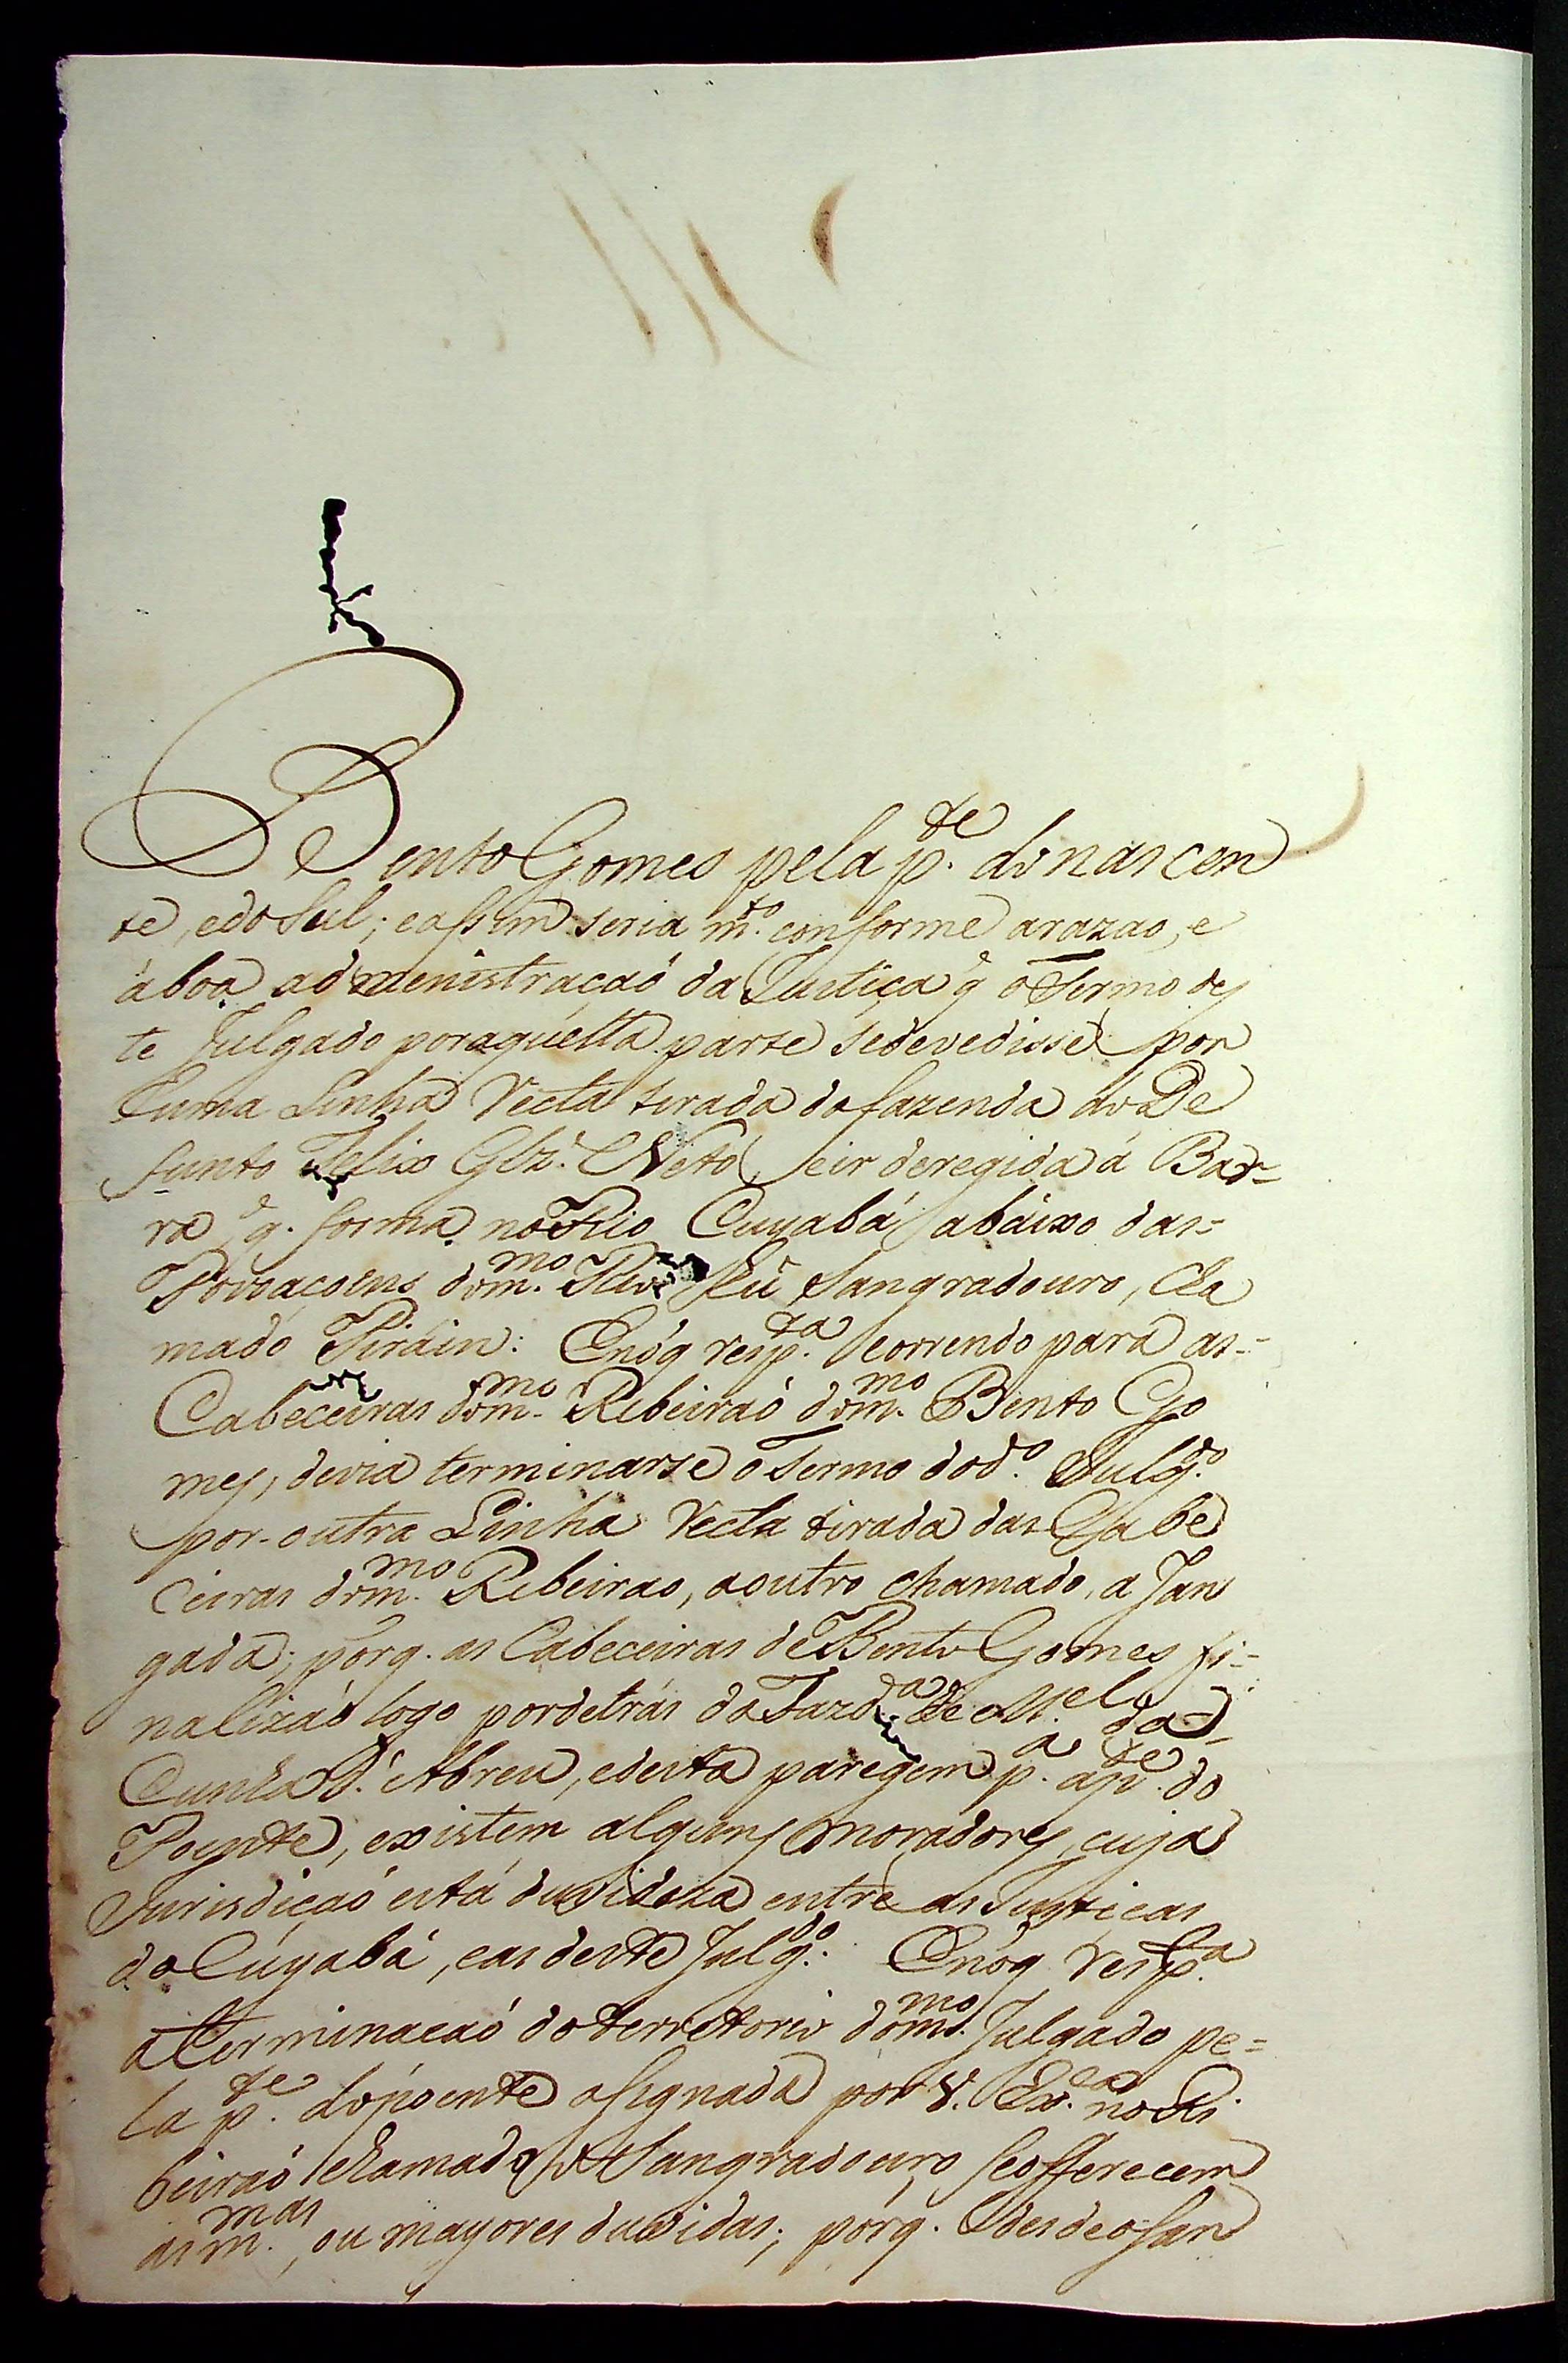 Bento Gomes pela p.te do nascen
te, edo Sul; eassim seria m.to conforme arazao, e
áboa admenistraçaõ da Justiça q̃ o Termo des
te Julgado poraquella parte sedevedisse por
huma Linha recta tirada da fazenda do De
funto Felix Glz.' Neto, eir deregida á Bar-
ra q̃. forma no Rio Cuyabá abáixo das=
Povoaçoens dom.mo Rio hũ Sangradouro, cha
mado Piráin: Enóq resp.ta correndo para as=
Cabeceiras dom.mo Ribeiraõ dom.mo Bento Go
mes, devia terminarse o Termo dod.o Julg.do
por-outra Linha recta tirada das Cabe
ceiras dom.mo Ribeirao, aoutro chamado, a Jan
gada; porq. as Cabeceiras de Bento Gomes fi=
nalizaõ logo pordetrás da Fazd.a de M.el da=
Cunha d.' Abreu, edesta paregem p.a ap.te do
Poente, existem alguns moradores, cuja
Jurisdicaõ está duvidoza entre as Justicas
do Cúyabá, eas deste Julg.do: Enóq resp.ta
aterminacaõ doterretorio dom.mo Julgado pe=
la p.te dopoente asignada por V. Ex.ca no Ri
beiraõ chamado o Sangradouro, seofferecem
as m.mas, ou mayores duvidas; pórq. desdeosan